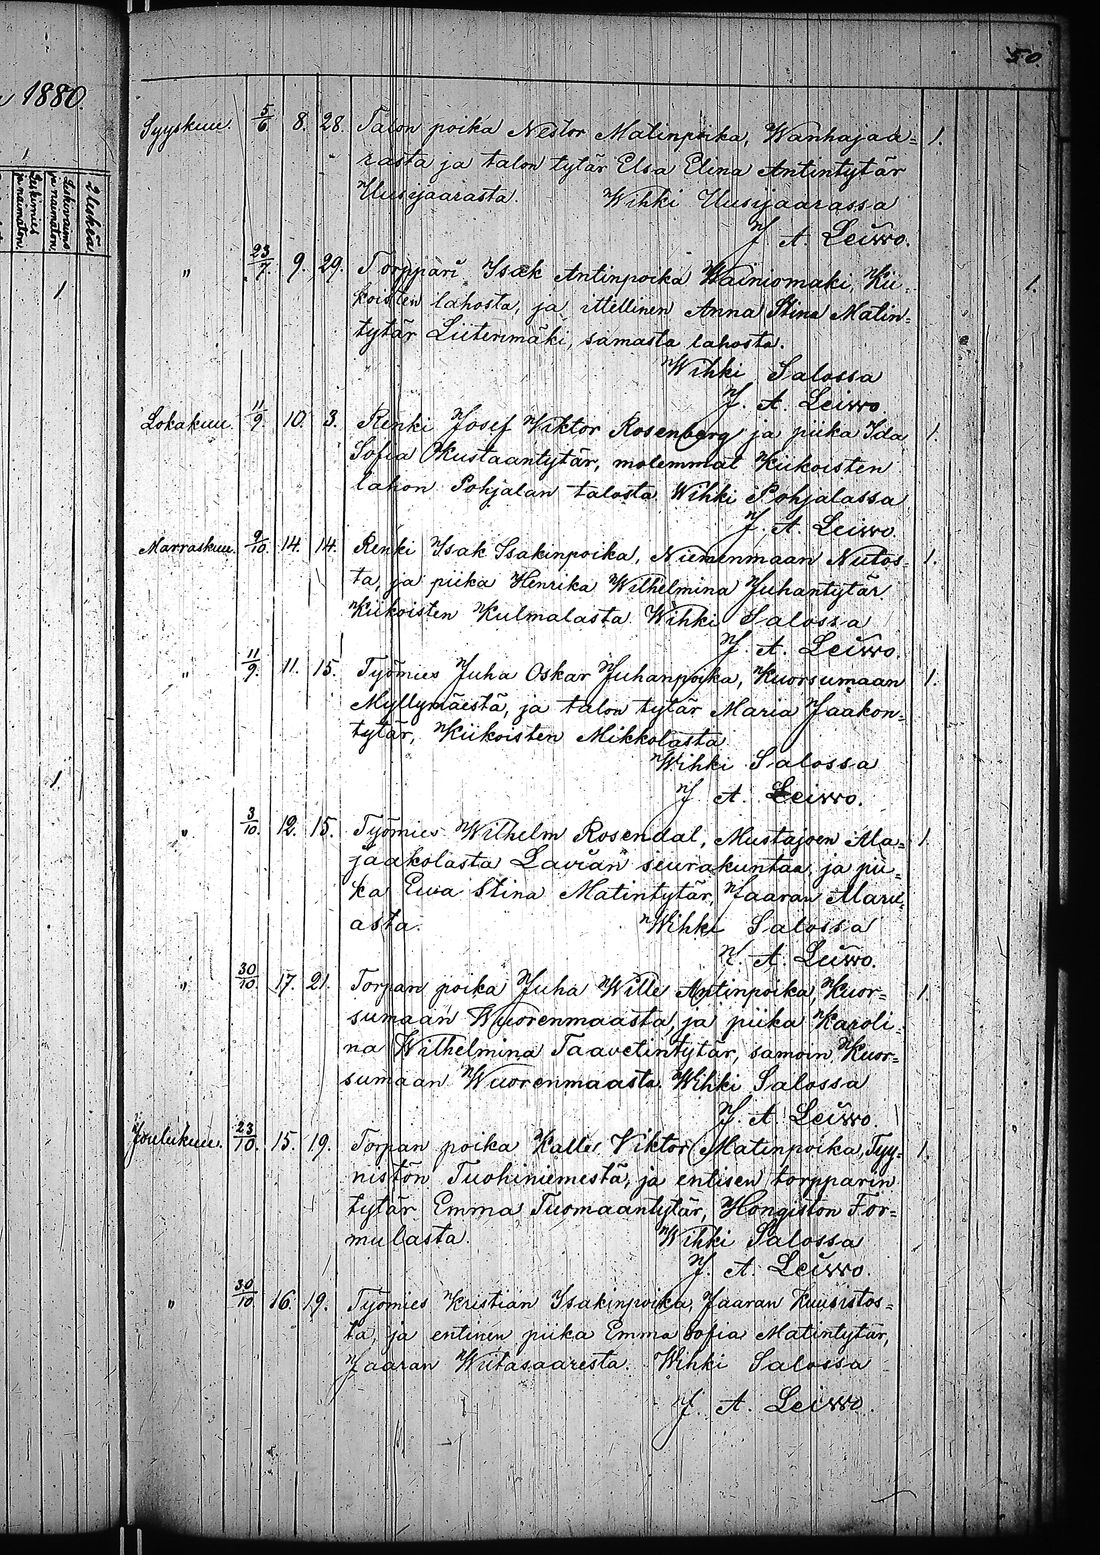 50.
1880.
2 luokia
Leskivaimo
ja naimaton.
Leskimies
ja naimaton.
1
1
Syyskuu. 5/6 8. 28. Talon poika Nestor Matinpoika, Wanhajaa= 1.
rasta ja talon tytär Elsa Elina Antintytär
Uusijaarasta. Wihki Uusijaarassa
J. A. Leiwo.
" 23/7. 9. 29. Torppari Isak Antinpoika Wainiomaki, Kii= 1.
koisten lahosta, ja ittellinen Anna Stina Matin=
tytär Liitenmäki, samasta lahosta.
Wihki Salossa
J. A. Leiwo.
Lokakuu. 11/9. 10. 3. Renki Josef Viktor Rosenberg ja piika Ida 1.
Sofia Kustaantytär, molemmat Kiikoisten
lahon Pohjalan talosta. Wihki Pohjalassa
J. A. Leiwo.
Marraskuu. 9/10. 14. 14. Renki Isak Isakinpoika, Niemenmaan Nutos= 1.
ta, ja piika Henrika Wilhelmina Juhantytär
Kiikoisten Kulmalasta. Wihki Salossa
J. A. Leiwo.
" 11/9. 11. 15. Työmies Juha Oskar Juhanpoika, Kuorsumaan 1.
Myllymäestä, ja talon tytär Maria Jaakon=
tytär, Kiikoisten Mikkolasta.
Wihki Salossa
J. A. Leiwo.
" 3/10. 12. 15. Työmies Wilhelm Rosendal, Mustajoen Ala= 1.
jaakolasta Lavian seurakuntaa, ja pii=
ka Ewa Stina Matintytär, Jaaran Maru=
asta. Wihki Salossa
J. A. Leiwo.
" 30/10. 17. 21. Torpan poika Juha Wille Antinpoika, Kuor= 1.
sumaan Wuorenmaasta ja piika Karoli=
na Wilhelmina Taavetintytär, samoin Kuor=
sumaan Wuorenmaasta. Wihki Salossa
J. A. Leiwo.
Joulukuu. 23/10. 15. 19. Torpan poika Kalle Viktor Matinpoika, Tyy= 1.
nistön Tuohiniemestä, ja entisen torpparin
tytär Emma Tuomaantytär, Hongiston For=
mulasta. Wihki Salossa
J. A. Leiwo.
" 30/10 16. 19. Työmies Kristian Isakinpoika, Jaaran Kuusistos=
ta, ja entinen piika Emma Sofia Matintytär,
Jaaran Wiitasaaresta. Wihki Salossa
J. A. Leiwo.